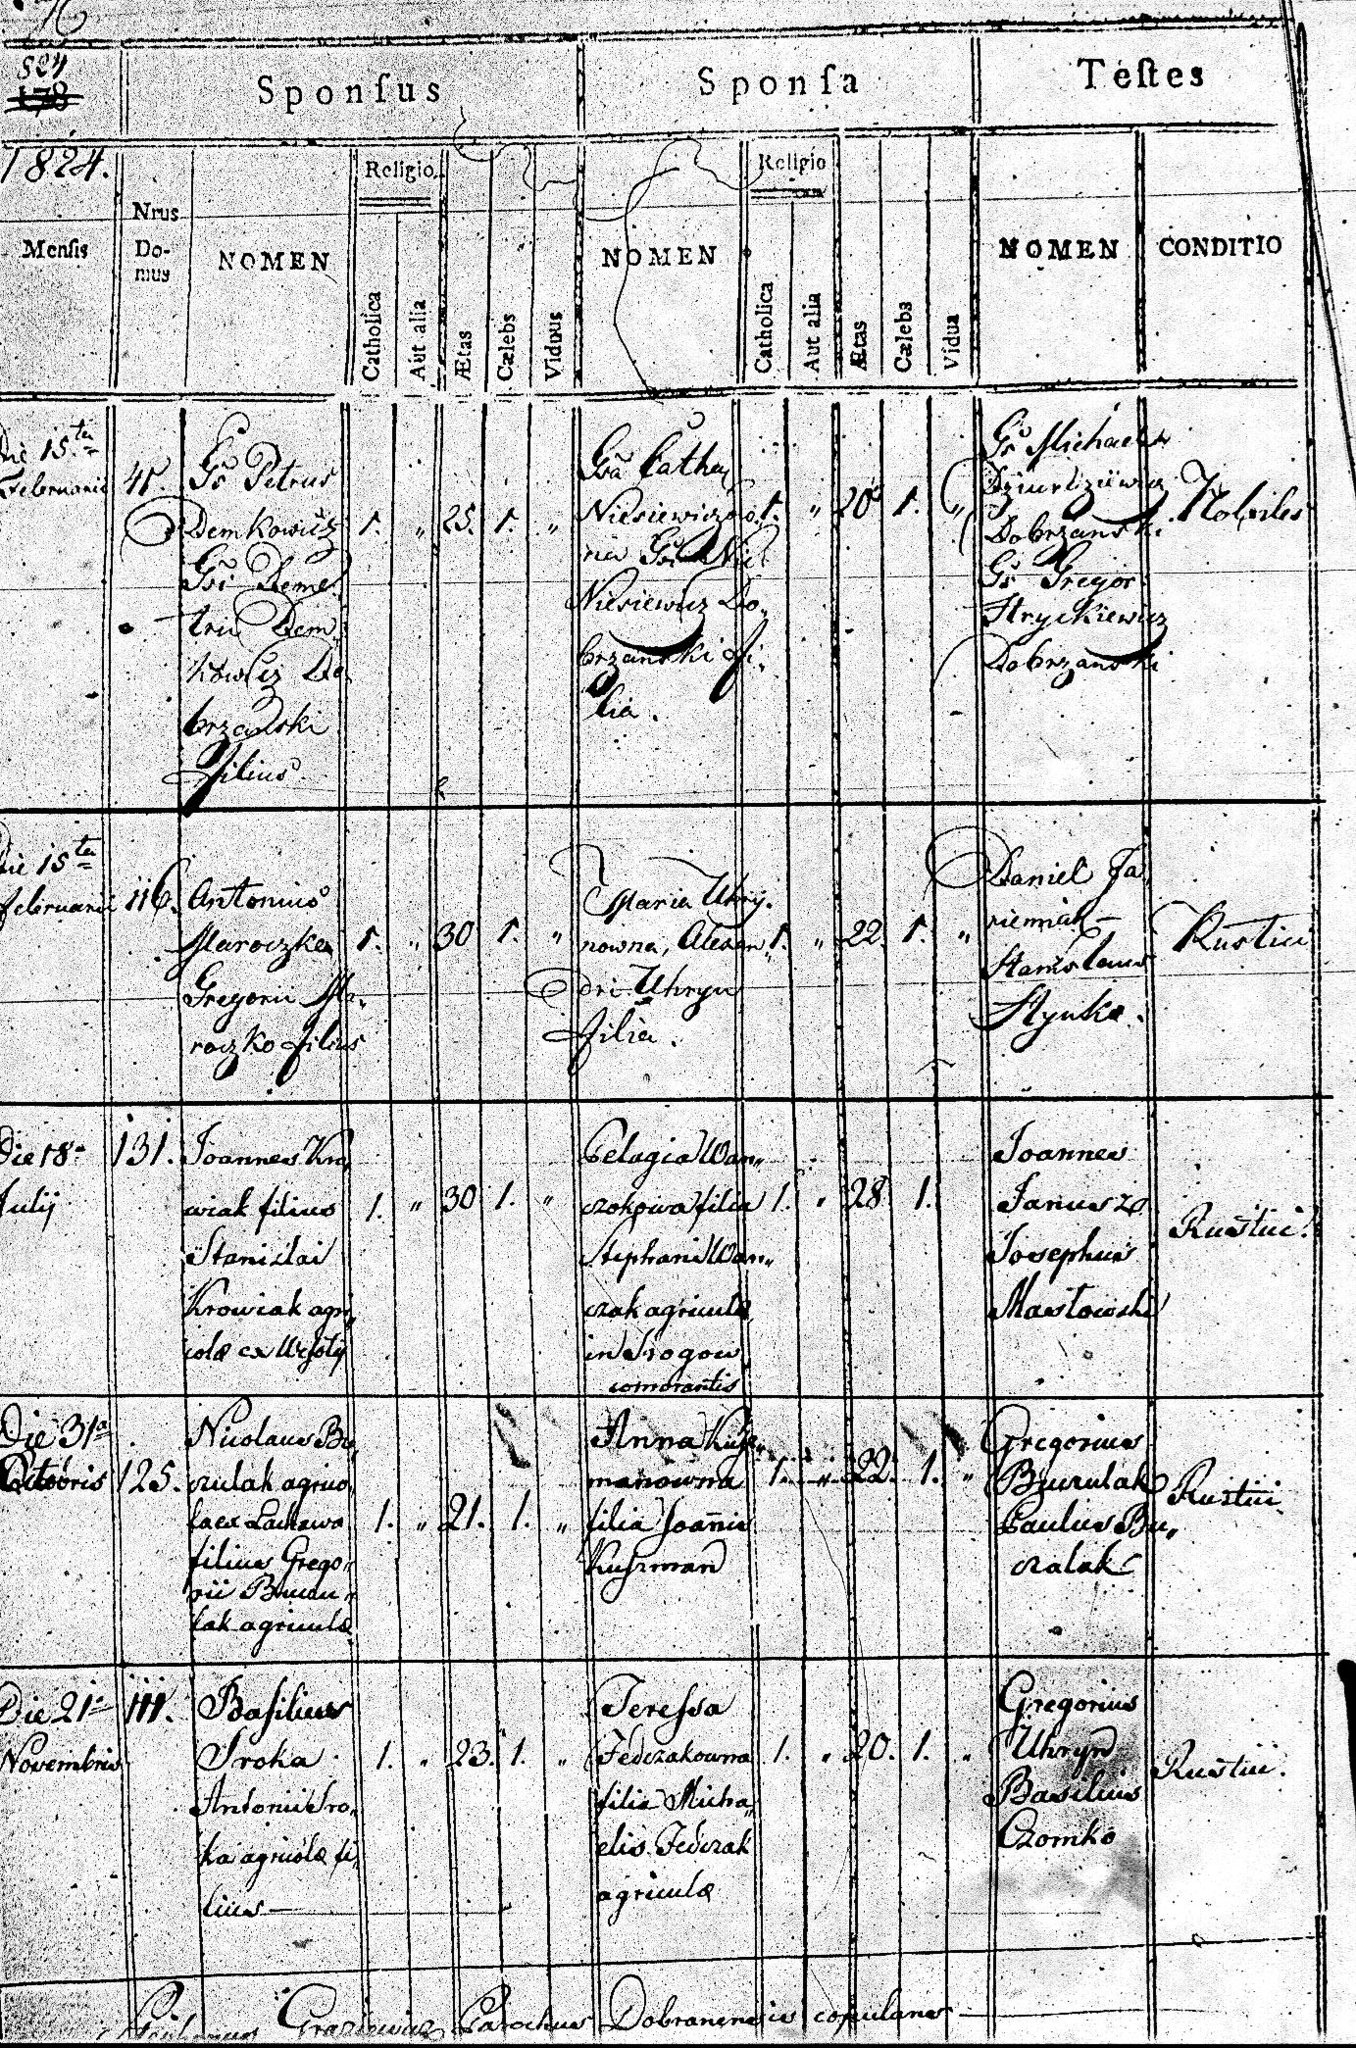 824
178
Sponſus
Sponſa
Teſtes
1824.
Menſis
Nrus
Do-
mus
NOMEN
Religio
Catholica
Aut alia
Ætas
Cælebs
Viduus
NOMEN
Religio
Catholica
Aut alia
Ætas
Cælebs
Vidua
NOMEN
CONDITIO
Die 15ta
Februarii
Gs Petrus
Demkowicz
Gsi Deme
trii Dem
kowicz Do
brzanski
filius
1. „ 25. 1. „
Gsa Catha
Niesiewiczo
Niesiewicz Do,
brzanski fi,
lia.
1. „ 20 1. „
Gs Michael
Dobrzanski.
Gs Gregor
Hryckiewicz
Dobrzanski
Nobiles
Die 15ta
Februarii
116.
Antonius
Maroczko
Gregorii Ma,
roczko filius
1. „ 30 1. „
Maria Uhry,
nowna, Alexan„
dri Uhryn
filia.
1. „ 22. 1. „
Daniel Ja„
niemiak
Stanislaus
Hynka.
Rustici
Die 18a
Julij
131.
Joannes Kro„
wiak filius
Stanislai
Krowiak agri„
colæ ex
1. „ 30 1. „
Pelagia Wan„
czokowa filia
Stephani Wan„
czak agricolæ
in Srogow
comorantis
1. „ 28 1.
Joannes
Janusz
Josephus
Mastowski
Rustici.
Die 31a
Octobris
125.
Nicolaus Bu,
czulak agrico,
la ex Lachawa
filius Grego„
rii Buczu„
lak agricolæ
1. „ 21. 1. „
Anna Kusz„
manowna
filia Joannis
Kuszman
1. „ 22. 1. „
Gregorius
Buczulak
Paulus Bu„
czalak
Rustici.
Die 21a
Novembris
111.
Basilius
Sroka
Antonii Sro,
ka agricolæ fi„
lius
1. „ 23. 1. „
Teressa
Fedczakowna
filia Micha„
elis Fedczak
agricolæ
1. „ 20. 1. „
Gregorius
Uhryn
Basilius
Czomko
Rustici.
Parochus Dobranensis copulans